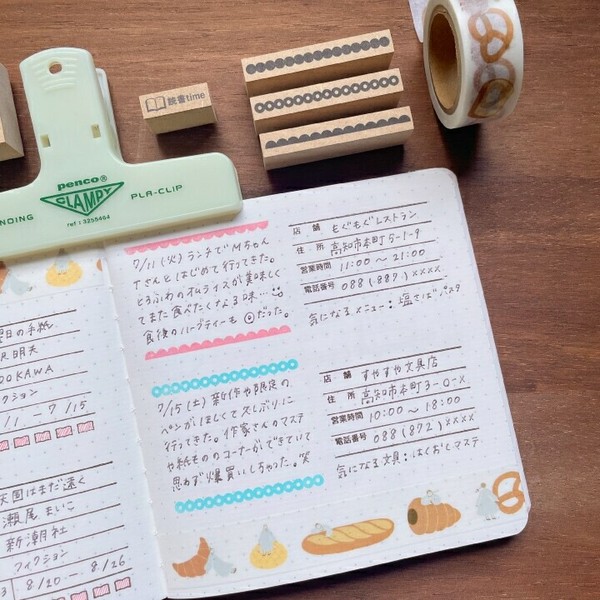 読書time
penco®
CLAMPY
PLA-CLIP
ref : 3255464
NDING
7/11 (火) ランチでMちゃん
Tさんとはじめて行ってきた。
とろふわのオムライスが美味しく
てまた食べたくなる味…
食後のハーブティーも◎だった。
店 舗 もぐもぐレストラン
住 所 高知市本町5-1-9
営業時間 11:00 〜 21:00
電話番号 088 (889) ××××
気になるメニュー：塩さばパスタ
7/15 (土) 新作や限定の
ペンがほしくて久しぶりに
行ってきた。作家さんのマステ
や紙もののコーナーができていて
思わず爆買いしちゃった。笑
店 舗 すやすや文具店
住 所 高知市本町3-0-×
営業時間 10:00 〜 18:00
電話番号 088 (892) ××××
気になる文具：はくおしマステ
曜日の手紙
沢明夫
DOKAWA
クション
/11 - 7/15
天国はまだ遠く
瀬尾まいこ
新潮社
フィクション
8/20 - 8/26